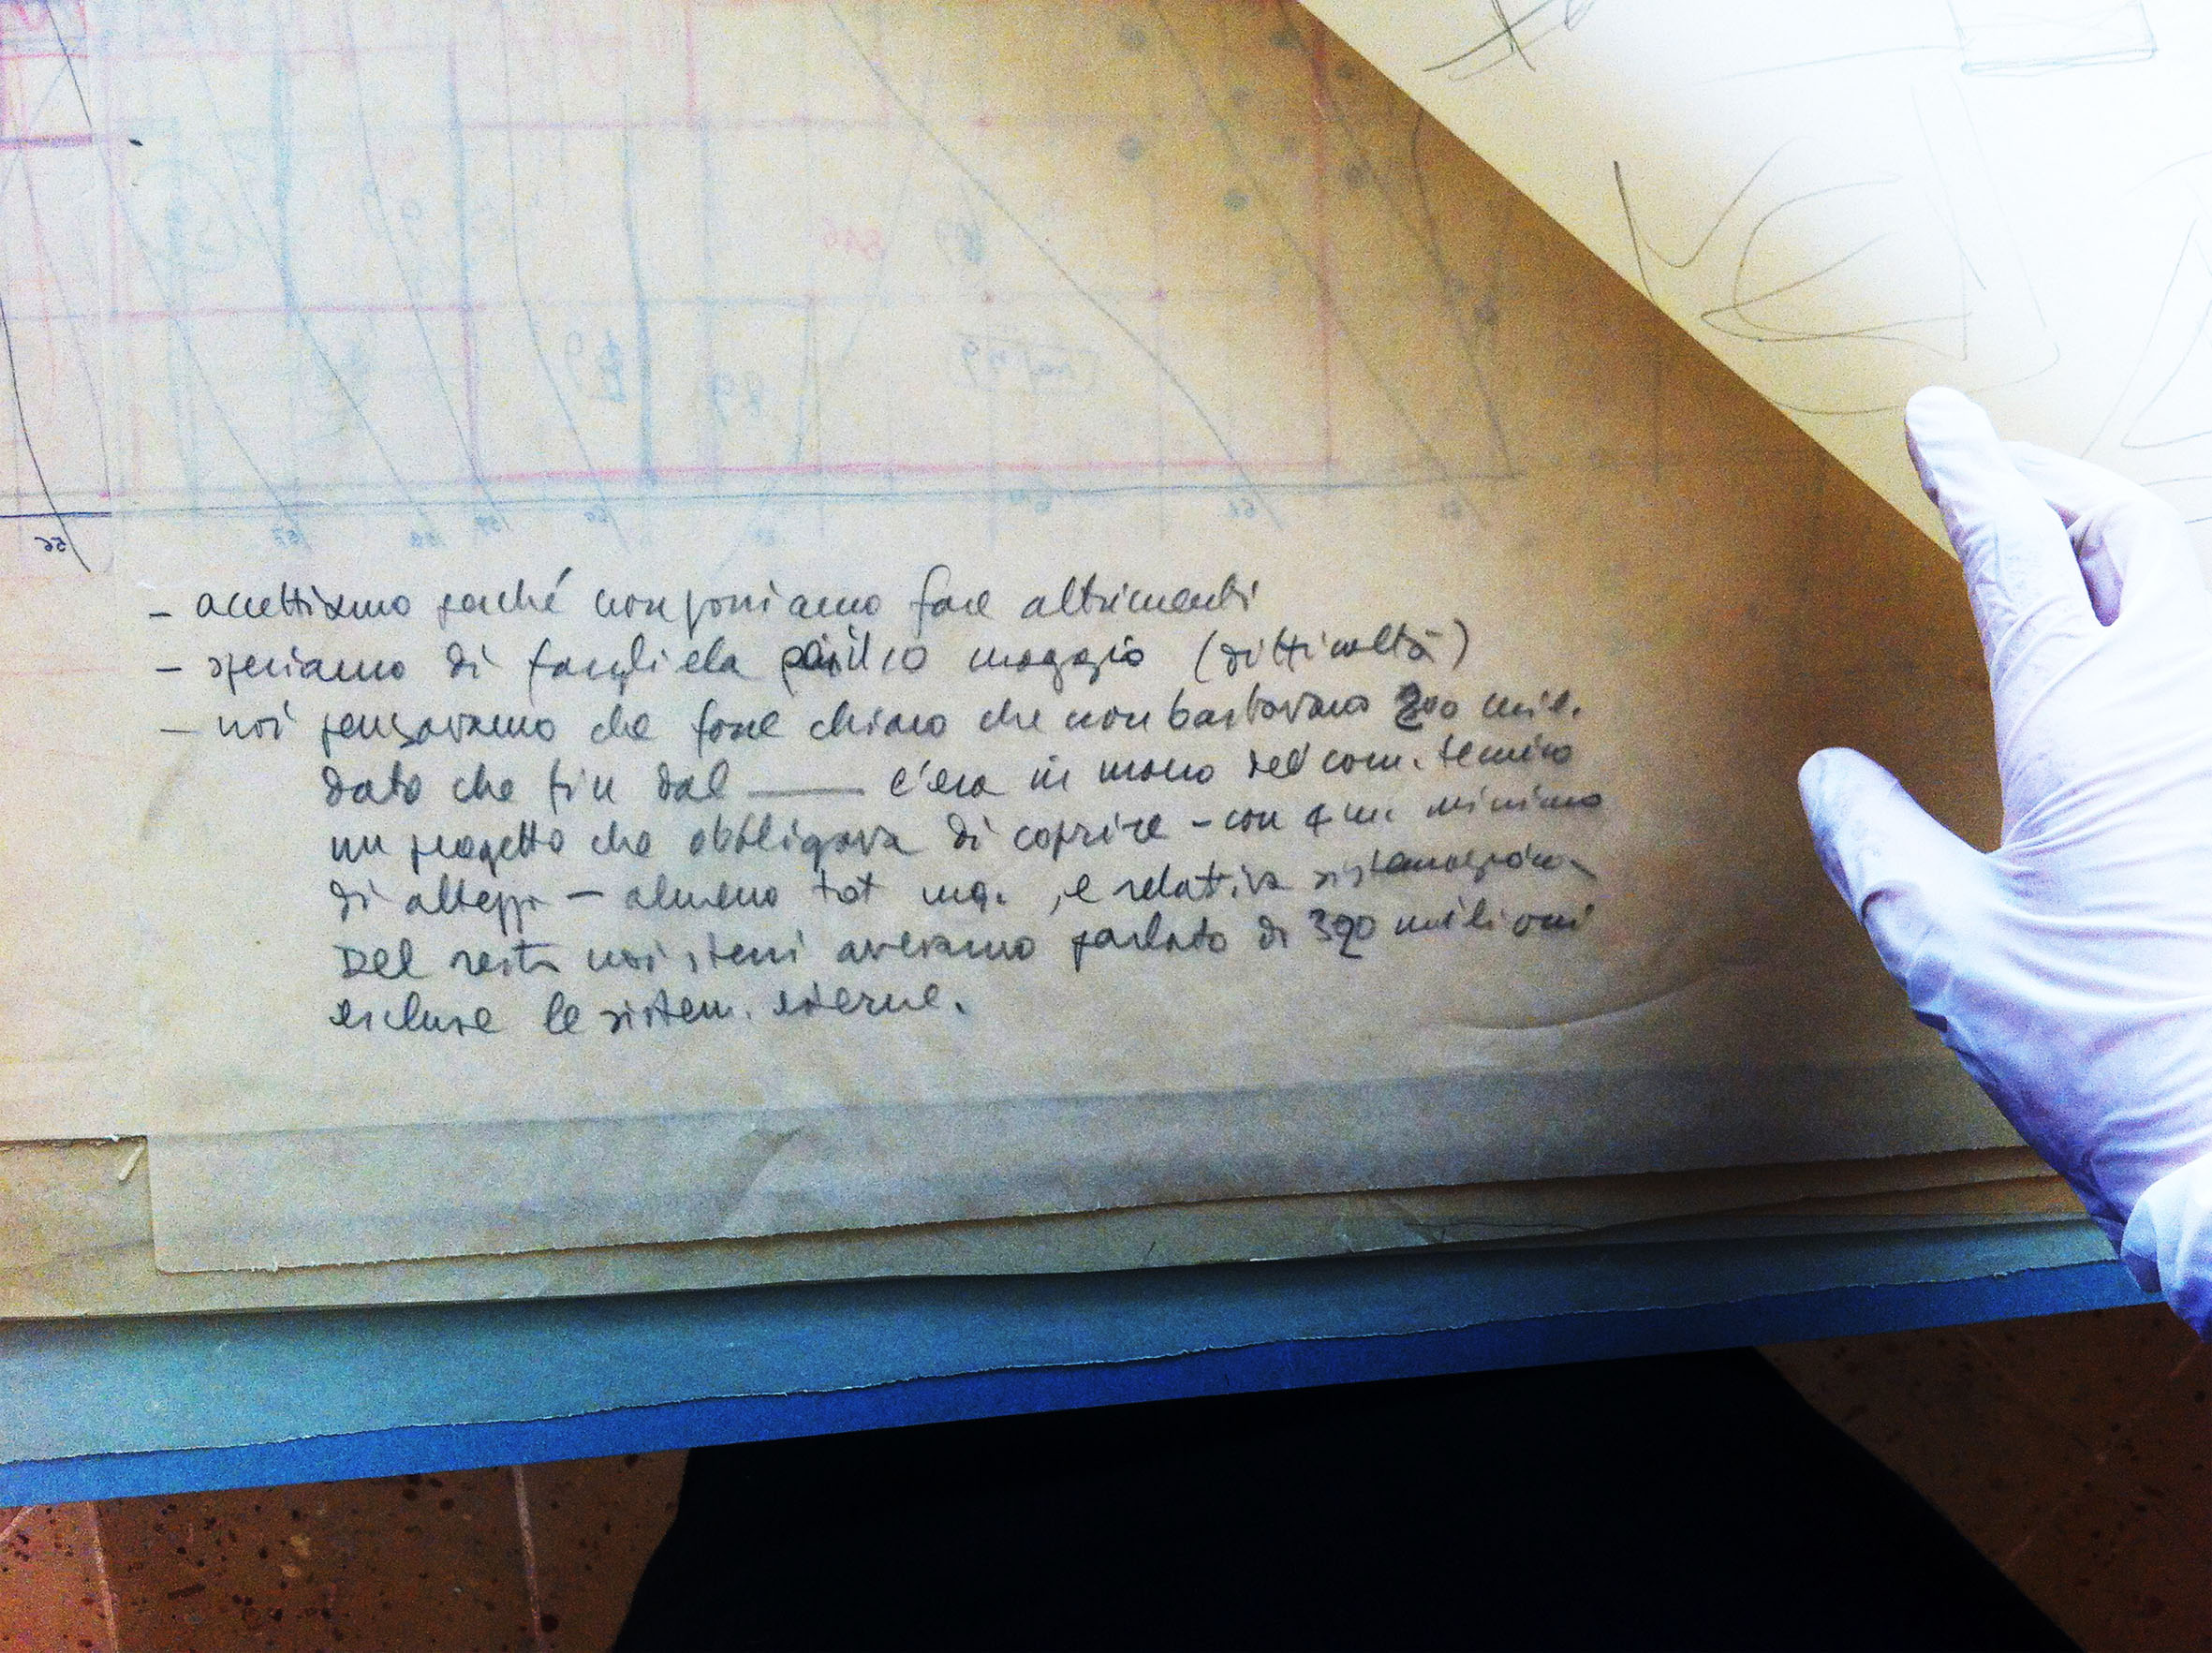 56
- accettiamo perché non possiamo fare altrimenti
- speriamo di fargliela il 10 maggio (difficoltà)
- noi pensavamo che fosse chiaro che non bastavano 200 mil.
dato che fin dal —— c'era in mano del com. tecnico
un progetto che obbligava di coprire - con 4 m. minimo
di altezza - almeno tot mq. , e relativa sistemazione
Del resto noi stessi avevamo parlato di 320 milioni
escluse le sistem. esterne.